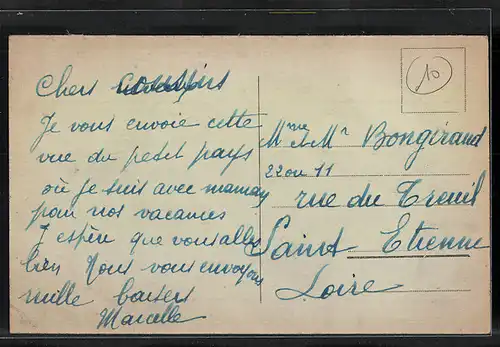 Chers cousins
Je vous envoie cette
vue du petit pays
où je suis avec maman
pour nos vacances
J'espère que vous allez
bien Nous vous envoyons
mille baisers
Marcelle
10
Mme & Mr Bongirand
22 ou 11
rue du Treuil
Saint Etienne
Loire